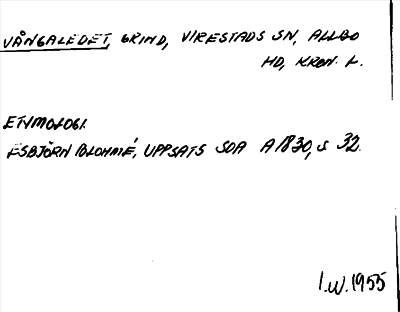 VÅNGALEDET, GRIND, VIRESTADS SN, ALLBO
HD, KRON. L.
ETYMOLOGI.
ESBJÖRN BLOHMÉ, UPPSATS SOA A1830, S 32.
I.W. 1955